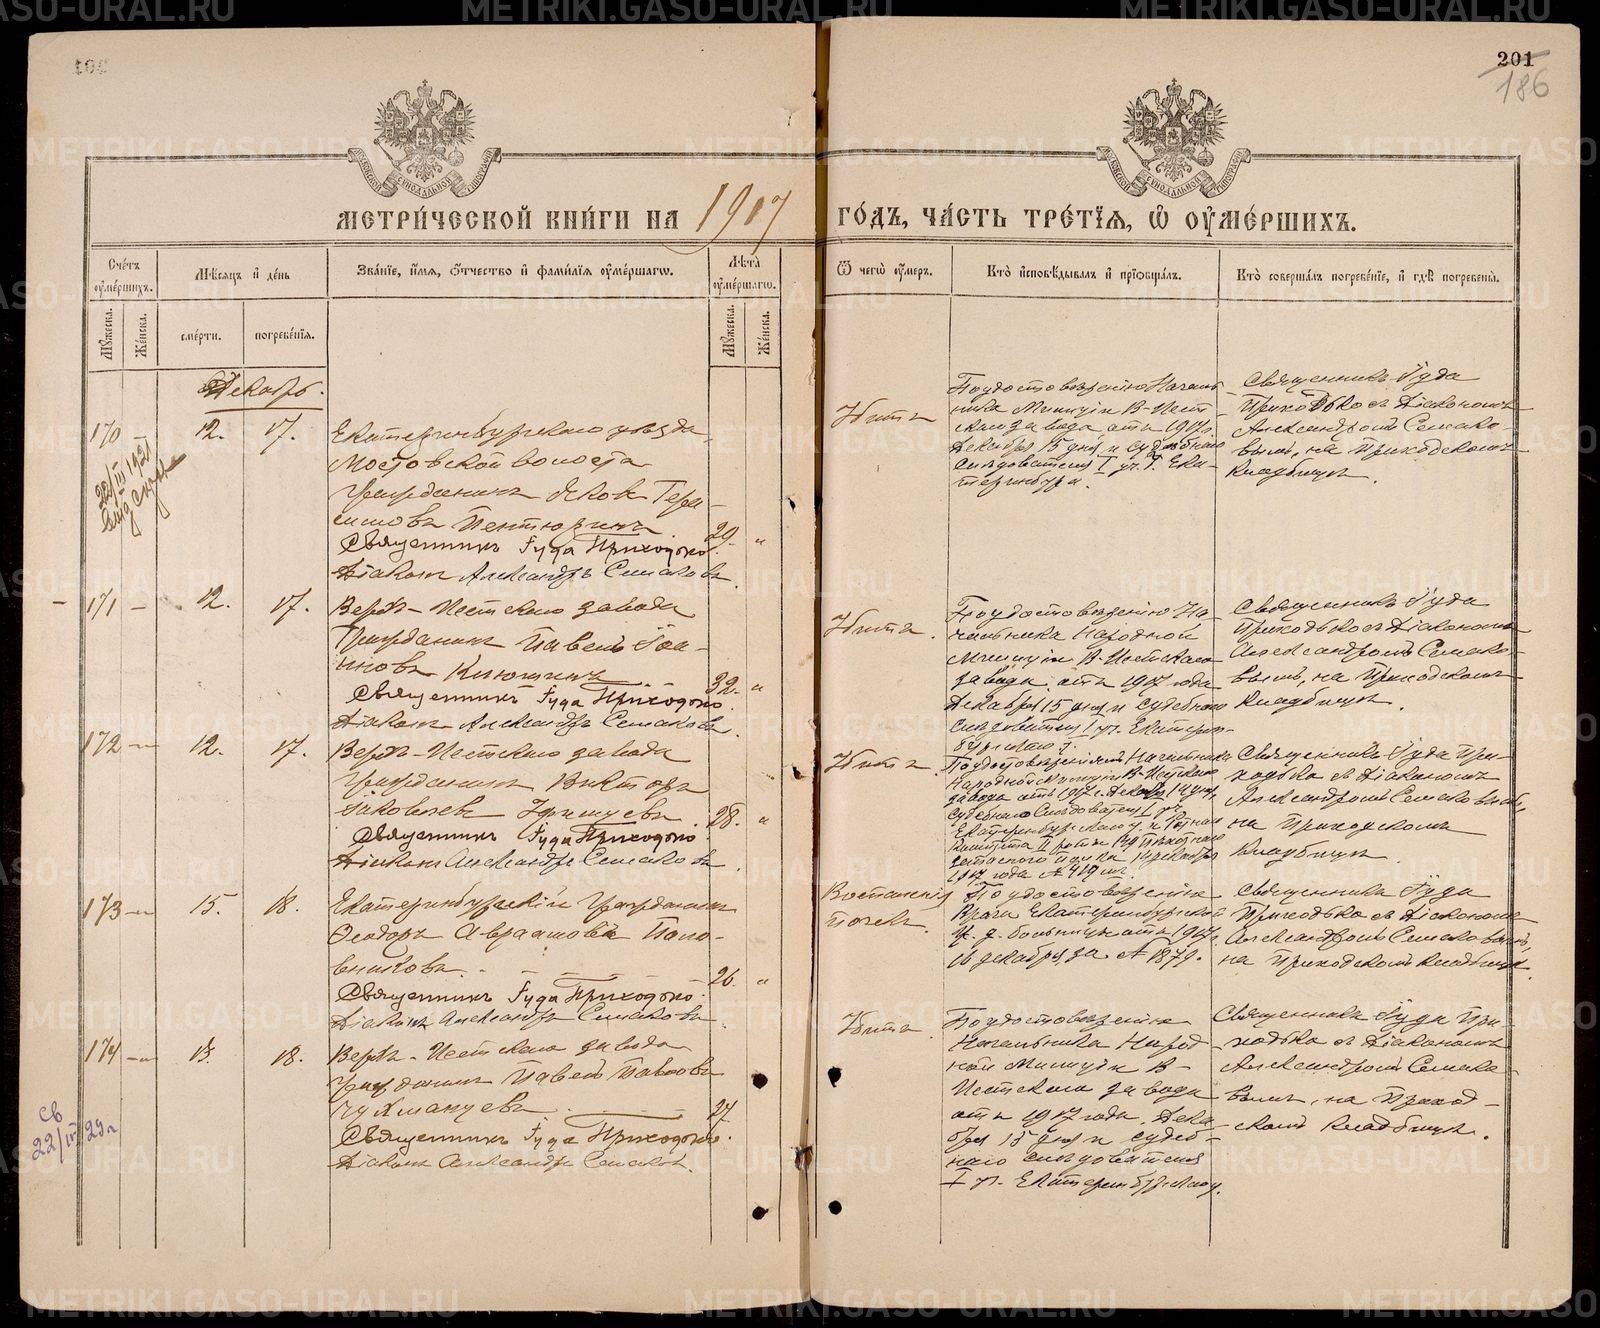 201
186
МОСКОВСКОЙ СѴНОДАЛЬНОЙ ТИПОГРАФІИ
МОСКОВСКОЙ СѴНОДАЛЬНОЙ ТИПОГРАФІИ
МЕТРИ́ЧЕСКОЙ КНИ́ГИ НА 1917 ГО́ДЪ, ЧА́СТЬ ТРЕ́ТІѦ, Ѡ ОУМЕ́РШИХЪ.
Сче́тъ оумершихъ.
Мѣсяцъ и де́нь
Зва́ніе, и́мя, ѻ҆́тчество и фами́лія оуме́ршагѡ.
Лѣта̀ оуме́ршагѡ.
Ѿ чегѡ̀ оу́меръ.
Кто̀ исповѣ́дывалъ и пріобща́лъ.
Кто̀ соверша́лъ погребе́ніе, и гдѣ̀ погребены̀.
Му́жеска.
Же́нска.
сме́рти.
погребе́нія.
Му́жеска.
Же́нска.
Декабрь.
170
12.
17.
Екатеринбургскаго уѣзда,
Мостовской волости
гражданинъ Яковъ Гера-
симовъ Пентюринъ
29. „
Священникъ Іуда Приходько.
Діаконъ Александръ Семаковъ.
Убитъ
По удостовѣренію Началь-
ника Милиціи В-Исет-
скаго завода отъ 1917 г.
Декабря 15 дня и судебнаго
слѣдователя I уч. г. Ека-
теринбурга.
Священникъ Іуда
Приходько съ Діакономъ
Александромъ Семако-
вымъ, на Приходскомъ
кладбищѣ.
171 -
12.
17.
Верхъ-Исетскаго завода
Гражданинъ Павелъ Іоан-
новъ Клюшинъ
32. „
Священникъ Іуда Приходько.
Діаконъ Александръ Семаковъ.
Убитъ.
По удостовѣренію На-
чальника Народной
Милиціи В-Исетскаго
завода отъ 1917 года
Декабря 15 дня и судебнаго
слѣдователя I уч. Екатерин-
бургскаго у.
Священникъ Іуда
Приходько съ Діакономъ
Александромъ Семако-
вымъ, на Приходскомъ
кладбищѣ.
172 -„-
12.
17.
Верхъ-Исетскаго завода
гражданинъ Викторъ
Іаковлевъ
28. „
Священникъ Іуда Приходько
Діаконъ Александръ Семаковъ.
Убитъ.
По удостовѣреніямъ Начальника
Народной Милиціи В-Исетскаго
завода отъ 1917 г. Декабря 14 дня,
судебнаго Слѣдователя I уч.
Екатеринбургскаго у. и Ротнаго
Комитета II роты
1917 года № 419
Священникъ Іуда При-
ходько съ Діакономъ
Александромъ Семаковымъ,
на Приходскомъ
кладбищѣ.
173 -„-
15.
18.
Екатеринбургскій гражданинъ
Ѳеодоръ Авраамовъ Поло-
вниковъ.
26. „
Священникъ Іуда Приходько.
Діаконъ Александръ Семаковъ.
Воспаленія
почекъ.
По удостовѣренію
Врача Екатеринбургской
ж. д. больницы отъ 1917 г.
16 декабря, за № 1879.
Священникъ Іуда
Приходько съ Діакономъ
Александромъ Семаковымъ,
на Приходскомъ кладбищѣ.
174 -„-
13.
18.
Верхъ-Исетскаго завода
гражданинъ Павелъ Павловъ
Чукманцевъ.
27.
Священникъ Іуда Приходько.
Діаконъ Александръ Семаковъ.
Убитъ.
По удостовѣренію
Начальника Народ-
ной Милиціи В-
Исетскаго завода
отъ 1917 года, Дека-
бря 15 дня и судеб-
наго слѣдователя
I уч. Екатеринбургск. у.
Священникъ Іуда При-
ходько съ Діакономъ
Александромъ Семако-
вымъ, на Приход-
скомъ кладбищѣ.
св
22/III 29 г
METRIKI.GASO-URAL.RU